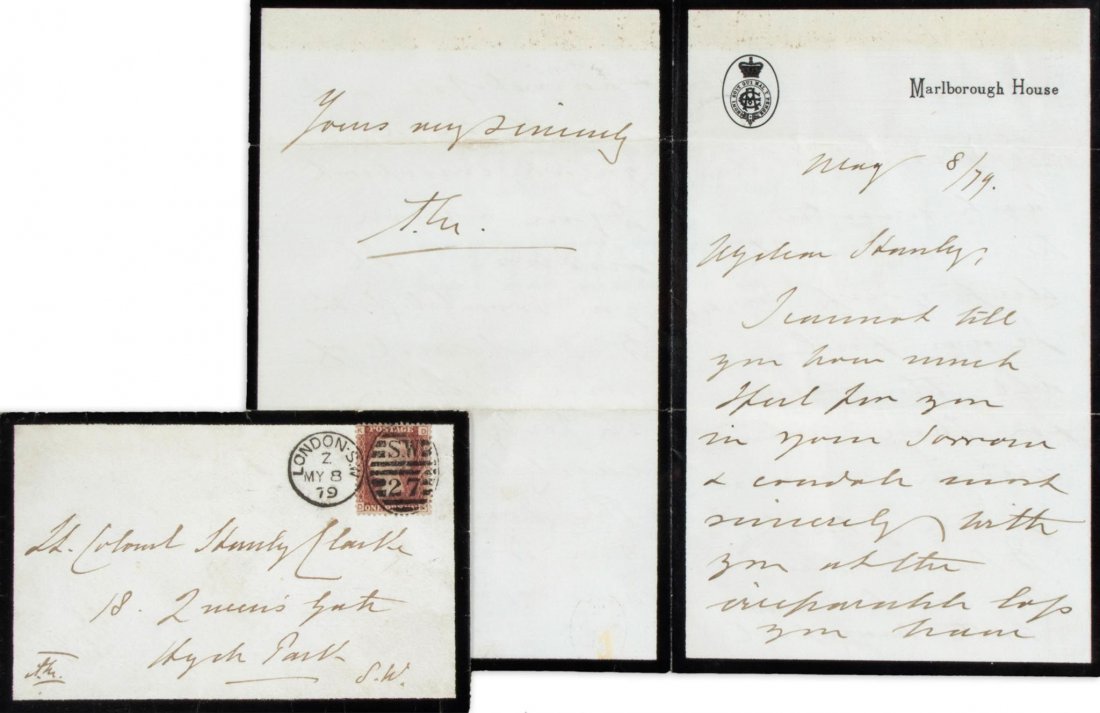 Marlborough House
May 8/79.
My dear Stanley,
I cannot tell
you how much
I feel for you
in your sorrow
& condole most
sincerely with
you at the
irreparable loss
you have
Yours very sincerely
LONDON·S.W
Z
MY 8
79
POSTAGE
S.W
27
Lt. Colonel Stanley Clarke
18. Queen's Gate
Hyde Park
S.W.